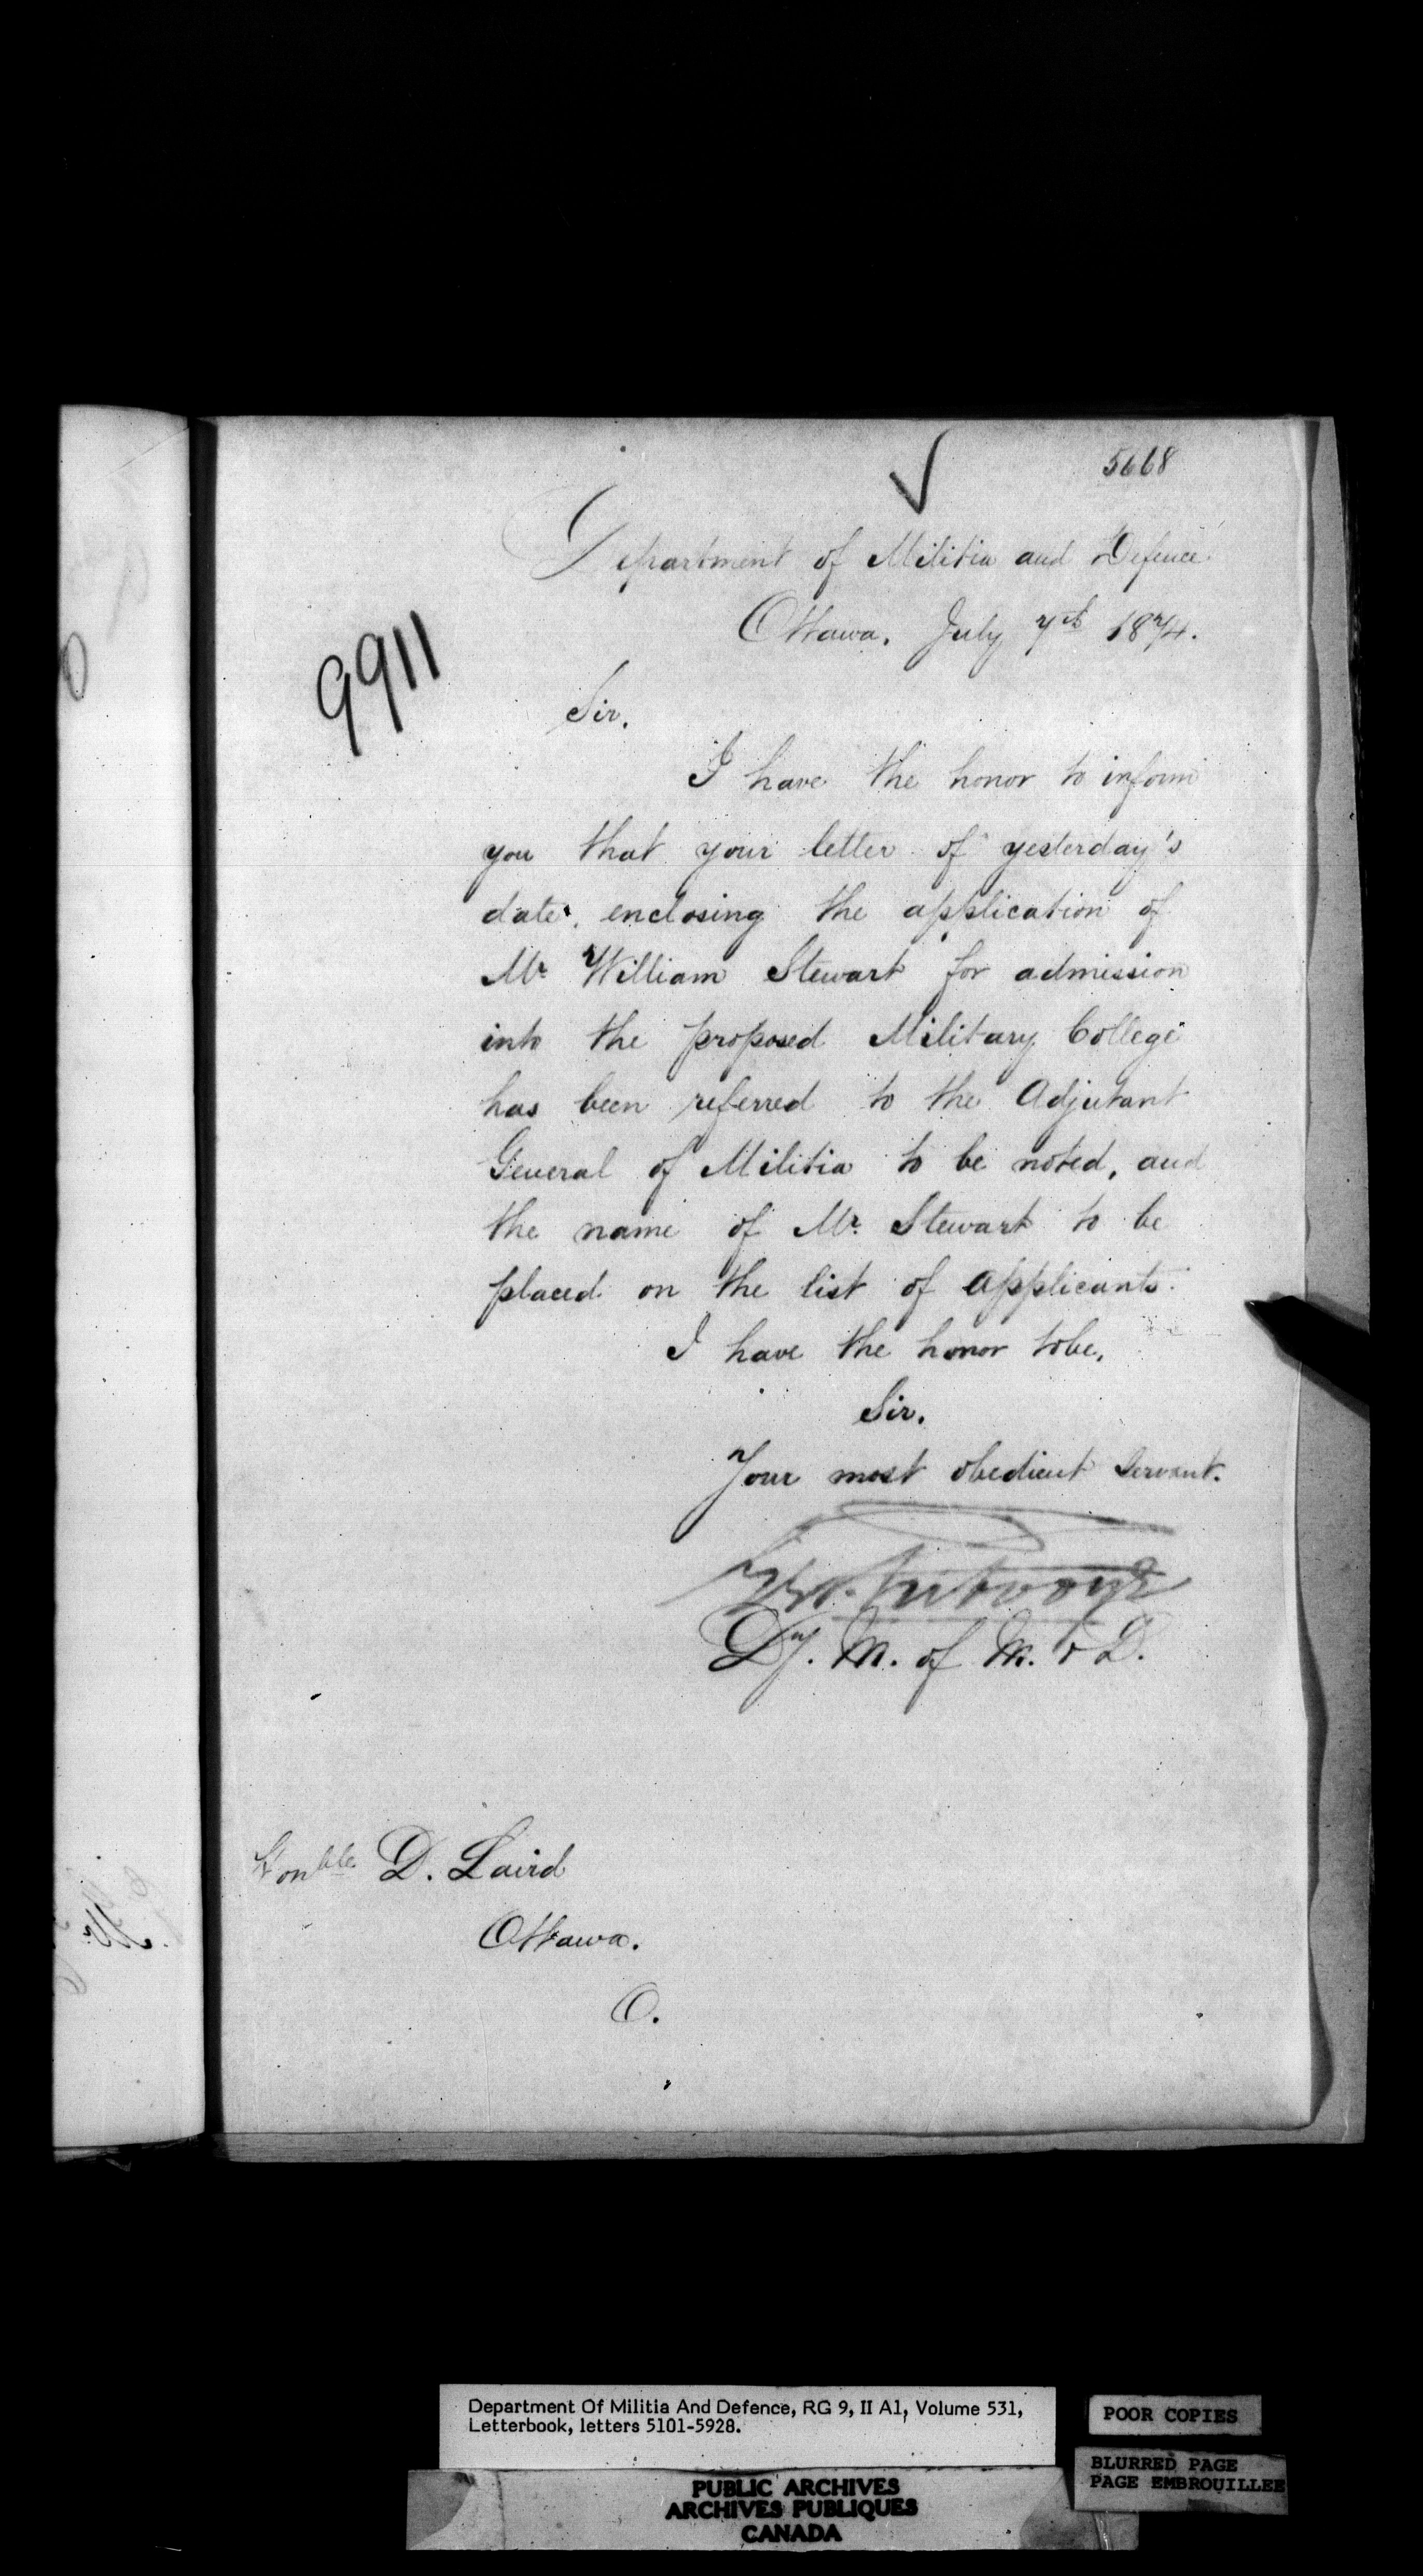 5668
Department of Militia and Defence
Ottawa. July 7th 1874.
9911
Sir.
I have the honor to inform
you that your letter of yesterday's
date, enclosing the application of
Mr William Stewart for admission
into the proposed Military College
has been referred to the Adjutant
General of Militia to be noted, and
the name of Mr. Stewart to be
placed on the list of applicants.
I have the honor to be,
Sir.
Your most obedient Servant.
Dy. M. of M. & D.
Honble D. Laird
Ottawa.
O.
Department Of Militia And Defence, RG 9, II A1, Volume 531,
Letterbook, letters 5101-5928.
POOR COPIES
BLURRED PAGE
PAGE EMBROUILLEE
PUBLIC ARCHIVES
ARCHIVES PUBLIQUES
CANADA